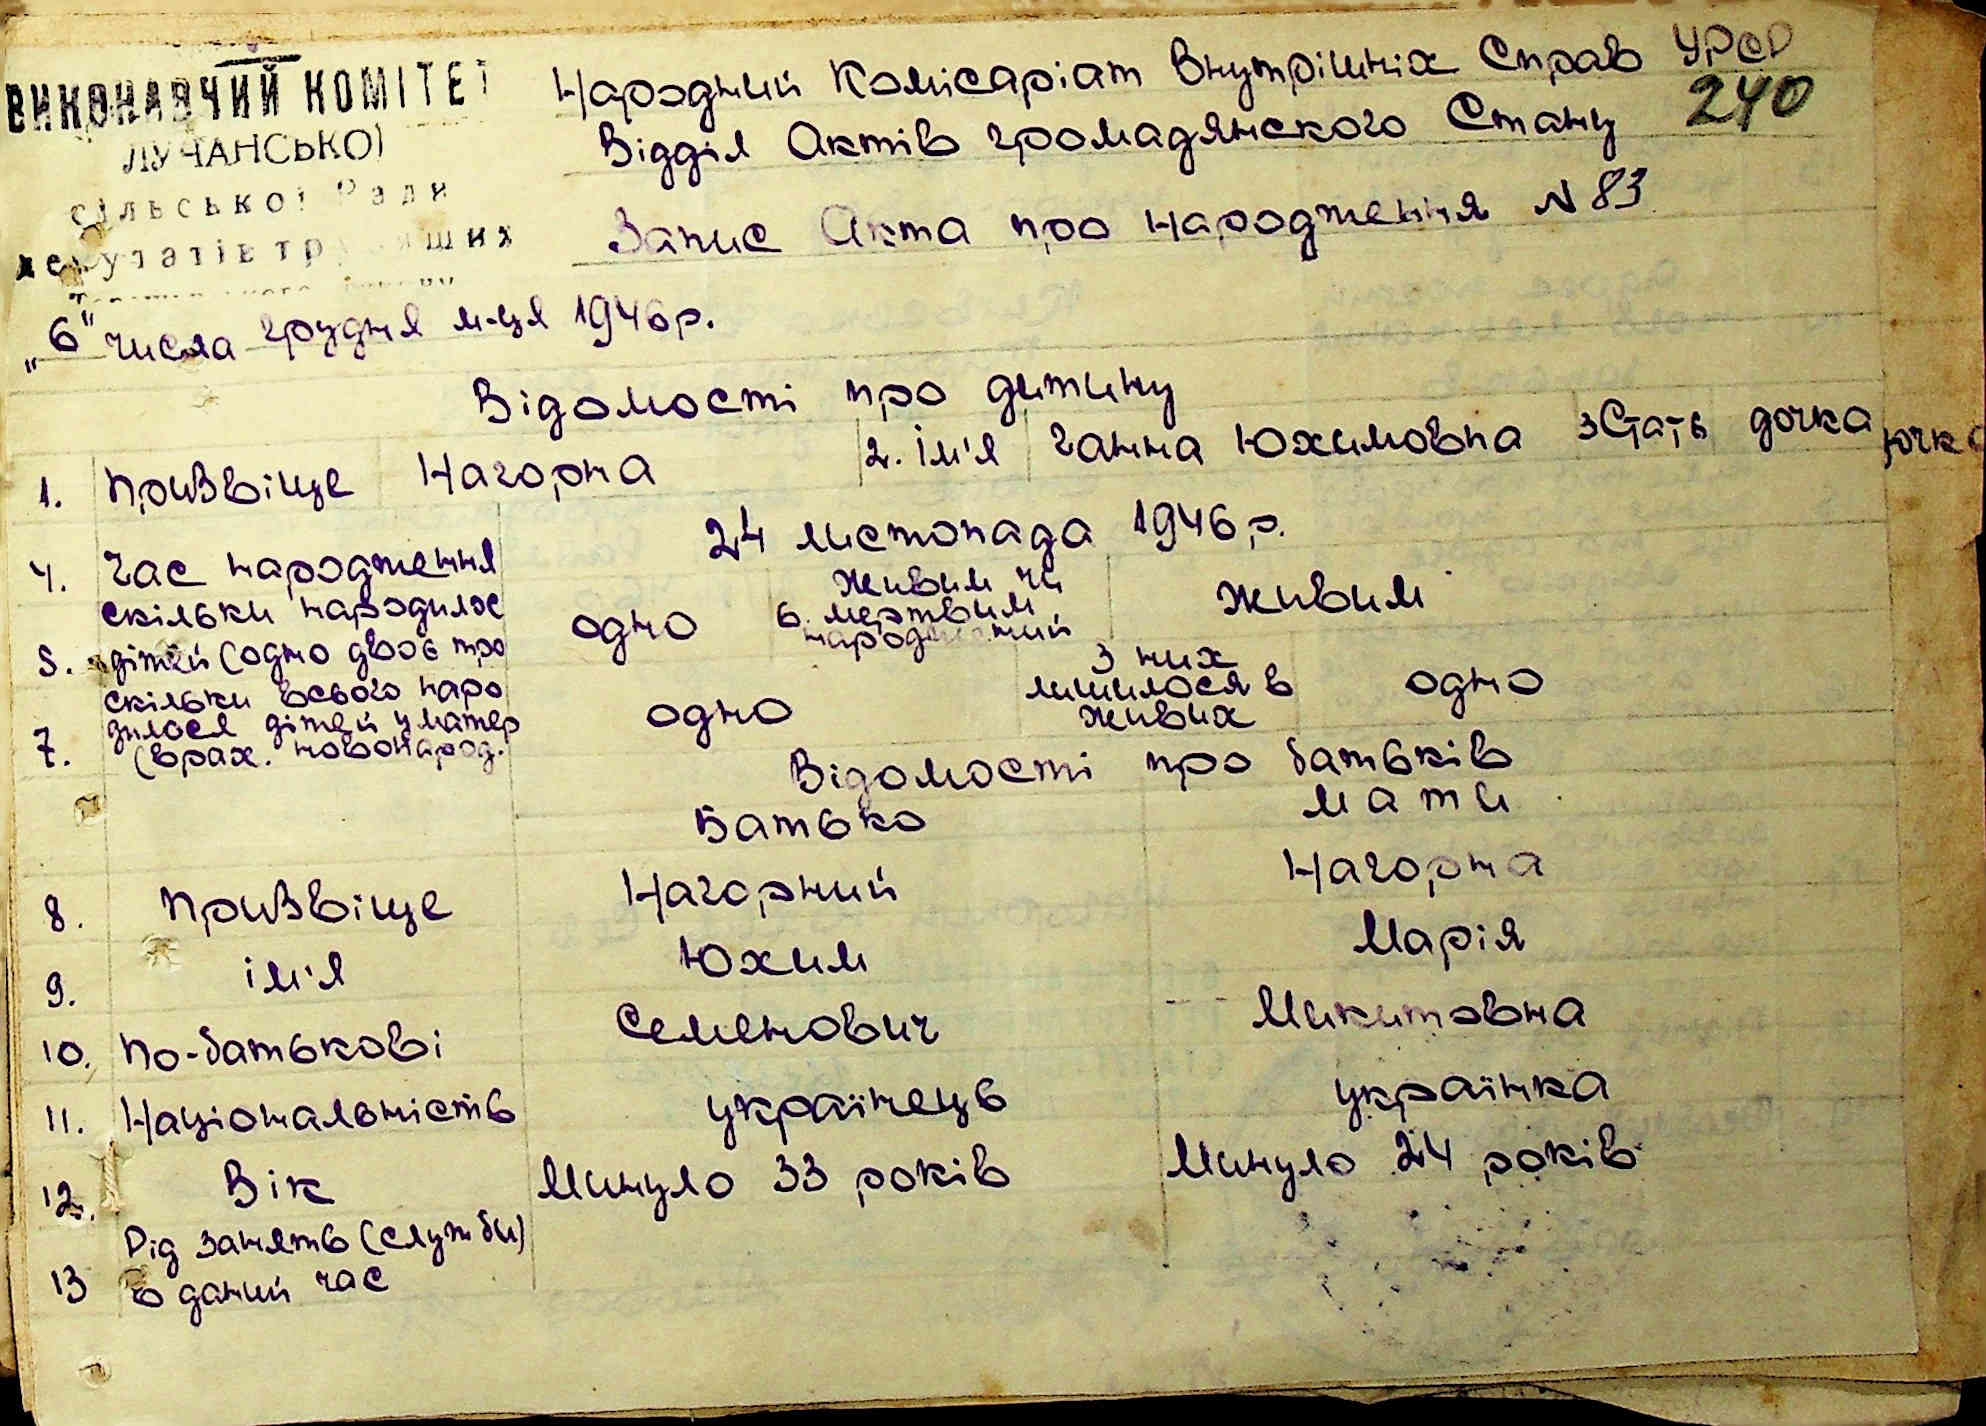 ВИКОНАВЧИЙ КОМІТЕТ
ЛУЧАНСЬКОЇ
сільської Ради
депутатів трудящих
Народний Комісаріат Внутрішніх Справ УРСР
240
Відділ Актів громадянского Стану
Запис Акта про народження N 83
"6" числа грудня м-ця 1946 р.
Відомості про дитину
1. Призвіще Нагорна 2. Ім'я Ганна Юхимовна 3 Стать дочка
4. Час народження 24 листопада 1946 р.
5. скільки народилос дітей (одно двоє тро одно 6. живим чи мертвим народжений живим
7. скільки всього наро дилося дітей у матер (врах. новонарод. одно З них лишилося в живих одно
Відомості про батьків
Батько мати
8. Призвіще Нагорний Нагорна
9. ім'я Юхим Марія
10. По-батькові Семенович Микитовна
11. Національність українець українка
12. Вік Минуло 33 років Минуло 24 років
13 Рід занять (служби)
в даний час